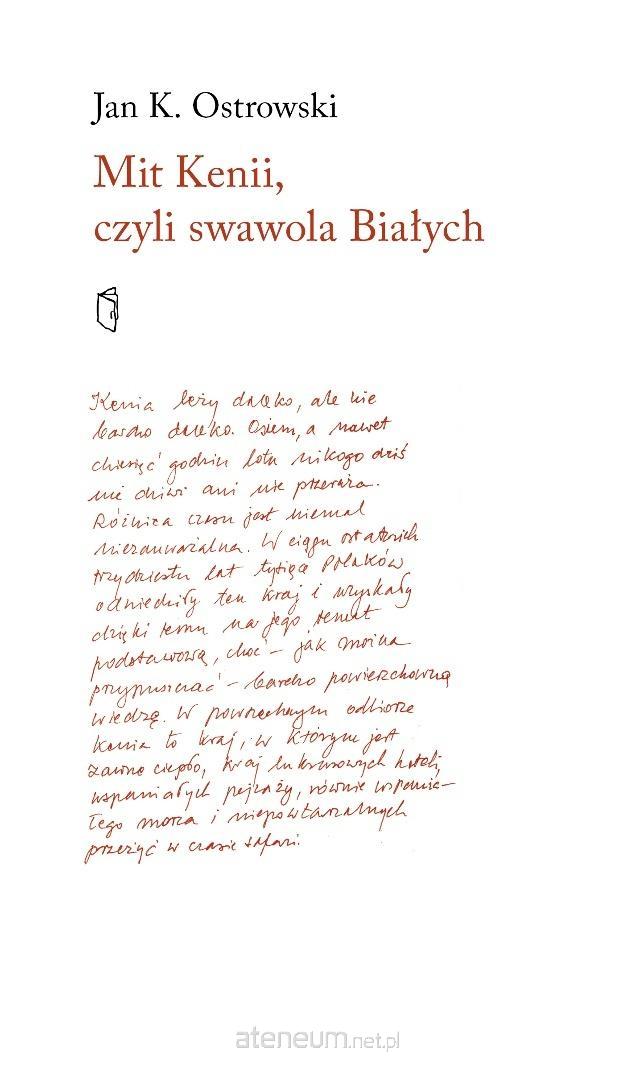 Jan K. Ostrowski
Mit Kenii,
czyli swawola Białych
Kenia leży daleko, ale nie
bardzo daleko. Osiem, a nawet
dziesięć godzin lotu nikogo dziś
nie dziwi ani nie przeraża.
Różnica czasu jest niemal
niezauważalna. W ciągu ostatnich
trzydziestu lat tysiące Polaków
odwiedziły ten kraj i uzyskały
dzięki temu na jego temat
podstawową, choć – jak można
przypuszczać – bardzo powierzchowną
wiedzę. W powszechnym odbiorze
Kenia to kraj, w którym jest
zawsze ciepło, kraj luksusowych hoteli,
wspaniałych pejzaży, równie wspania-
łego morza i niepowtarzalnych
przeżyć w czasie safari.
ateneum.net.pl